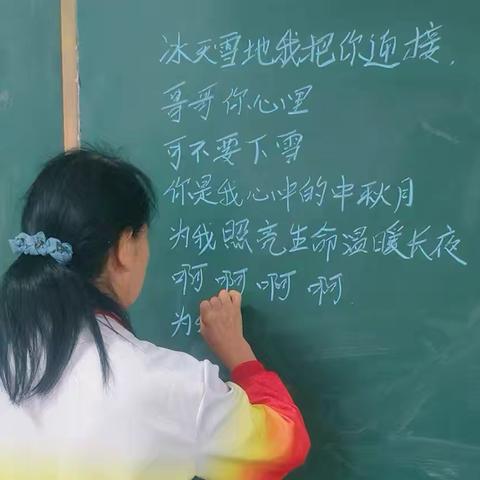 冰天雪地我把你迎接.
哥哥你心里
可不要下雪
你是我心中的中秋月
为我照亮生命温暖长夜
啊啊啊啊.
为